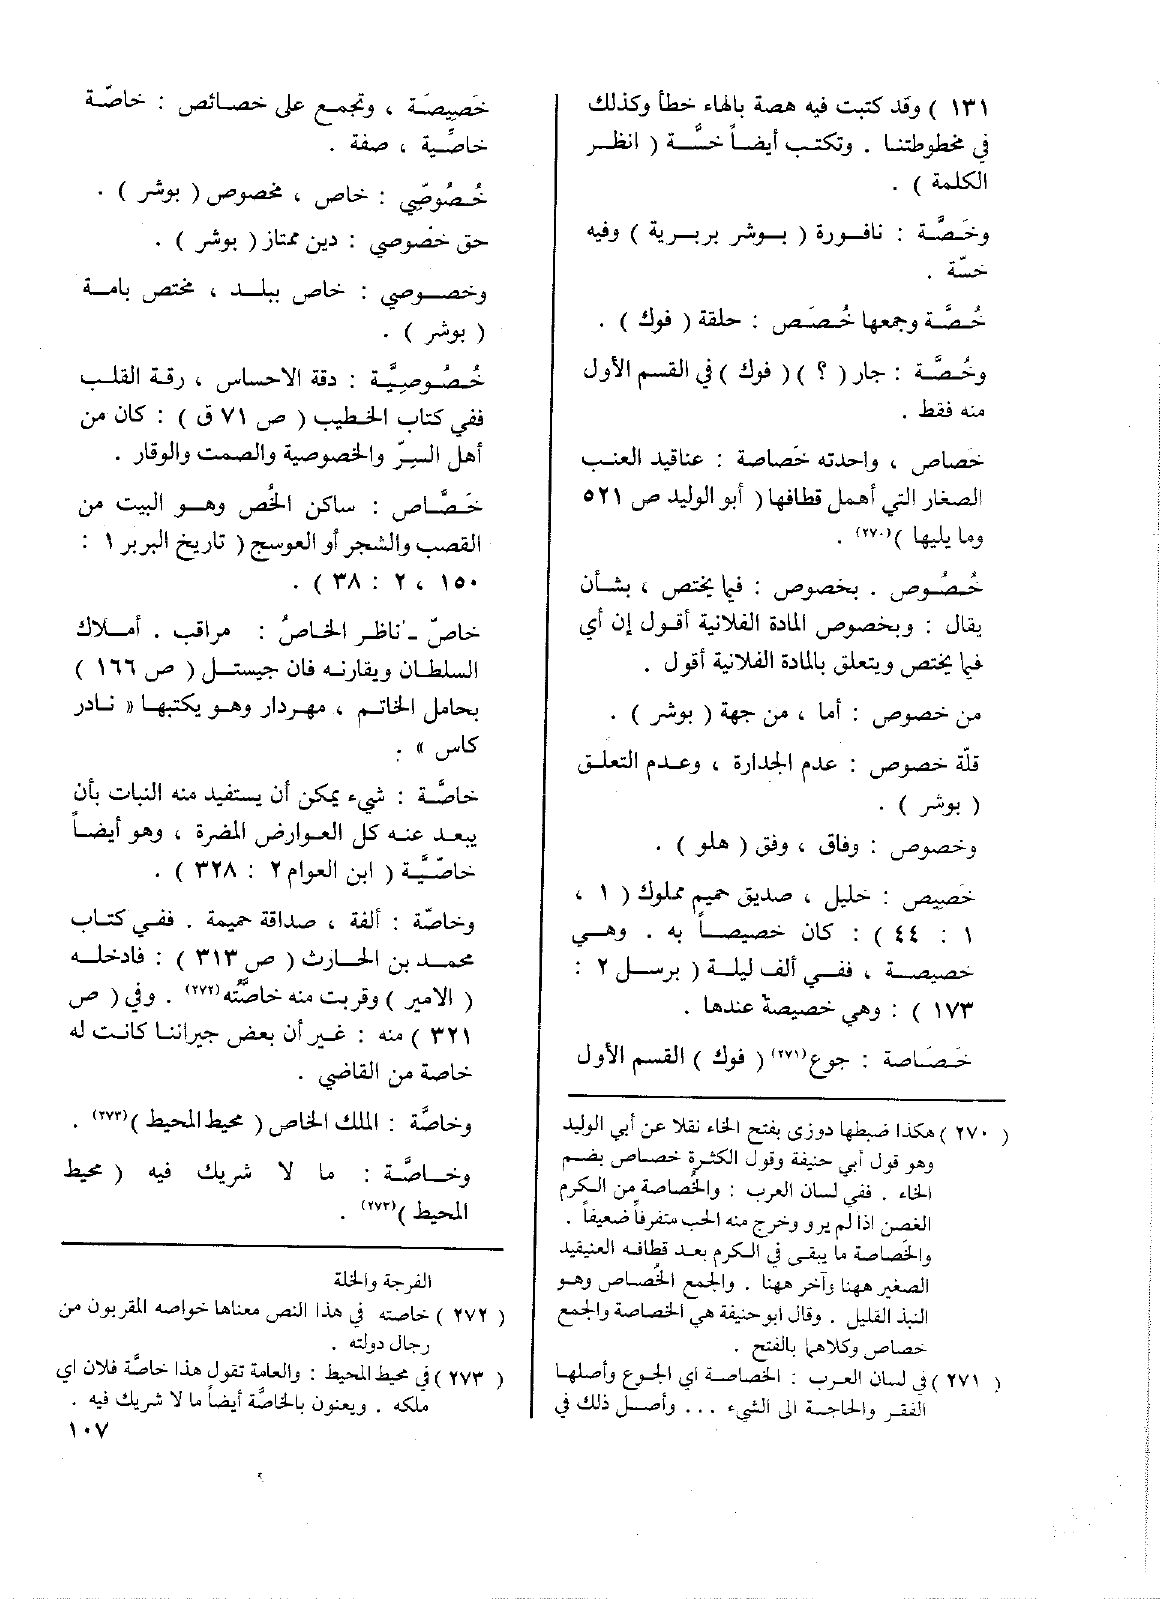 ١٣١ ) وقد كتبت فيه هصة بالهاء خطأ وكذلك
في مخطوطتنا . وتكتب أيضاً خسَّة ( انظر
الكلمة ) .
وخَصَّة : نافورة ( بوشر بربرية ) وفيه
خسّة .
خُصَّة وجمعها خُصَص : حلقة ( فوك ) .
وخُصَّة : جار ( ؟ ) ( فوك ) في القسم الأول
منه فقط .
خَصاص ، واحدته خَصاصة : عناقيد العنب
الصغار التي أهمل قطافها ( أبو الوليد ص ٥٢١
وما يليها )(٢٧٠) .
خُصُوص . بخصوص : فيما يختص ، بشأن
يقال : وبخصوص المادة الفلانية أقول إن أي
فيما يختص ويتعلق بالمادة الفلانية أقول .
من خصوص : أما ، من جهة ( بوشر ) .
قلّة خصوص : عدم الجدارة ، وعدم التعلق
( بوشر ) .
وخصوص : وفاق ، وفق ( هلو ) .
خَصيص : خليل ، صديق حميم مملوك ( ١ ،
١ : ٤٤ ) : كان خصيصاً به . وهي
خصيصة ، ففي ألف ليلة ( برسل ٢ :
١٧٣ ) : وهي خصيصة عندها .
خَصَاصة : جوع(٢٧١) ( فوك ) القسم الأول
( ٢٧٠ ) هكذا ضبطها دوزى بفتح الخاء نقلا عن أبي الوليد
وهو قول أبي حنيفة وقول الكثرة خصاص بضم
الخاء . ففي لسان العرب : والخُصاصة من الكرم
الغصن اذا لم يرو وخرج منه الحب متفرقاً ضعيفاً .
والخَصاصة ما يبقى في الكرم بعد قطافه العنيقيد
الصغير ههنا وآخر ههنا . والجمع الخُصاص وهو
النبذ القليل . وقال ابو حنيفة هي الخصاصة والجمع
خصاص وكلاهما بالفتح .
( ٢٧١ ) في لسان العرب : الخصاصة اي الجوع وأصلها
الفقر والحاجة الى الشيء . . . وأصل ذلك في
خَصِيصَة ، وتجمع على خصائص : خاصّة
خاصِّية ، صفة .
خُصُوصِّي : خاص ، مخصوص ( بوشر ) .
حق خصوصي : دين ممتاز ( بوشر ) .
وخصوصي : خاص ببلد ، مختص بامة
( بوشر ) .
خُصُوصِيَّة : دقة الاحساس ، رقة القلب
ففي كتاب الخطيب ( ص ٧١ ق ) : كان من
أهل السِرّ والخصوصية والصمت والوقار .
خَصَّاص : ساكن الخُص وهو البيت من
القصب والشجر أو العوسج ( تاريخ البربر ١ :
١٥٠ ، ٢ : ٣٨ ) .
خاصّ - ناظر الخاصُ : مراقب . أملاك
السلطان ويقارنه فان جيستل ( ص ١٦٦ )
بحامل الخاتم ، مهردار وهو يكتبها « نادر
كاس » .
خاصَّة : شيء يمكن أن يستفيد منه النبات بأن
يبعد عنه كل العوارض المضرة ، وهو أيضاً
خاصّيَّة ( ابن العوام ٢ : ٣٢٨ ) .
وخاصّة : ألفة ، صداقة حميمة . ففي كتاب
محمد بن الحارث ( ص ٣١٣ ) : فادخله
( الامير ) وقربت منه خاصَّتُه(٢٧٢) . وفي ( ص
٣٢١ ) منه : غير أن بعض جيراننا كانت له
خاصة من القاضي .
وخاصَّة : الملك الخاص ( محيط المحيط )(٢٧٣) .
وخاصَّة : ما لا شريك فيه ( محيط
المحيط )(٢٧٣) .
الفرجة والخلة
( ٢٧٢ ) خاصته في هذا النص معناها خواصه المقربون من
رجال دولته .
( ٢٧٣ ) في محيط المحيط : والعامة تقول هذا خاصَّة فلان اي
ملكه . ويعنون بالخاصَّة أيضاً ما لا شريك فيه .
١٠٧